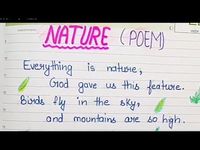 NATURE (POEM)
Everything is nature,
God gave us this feature.
Birds fly in the sky,
and mountains are so high.